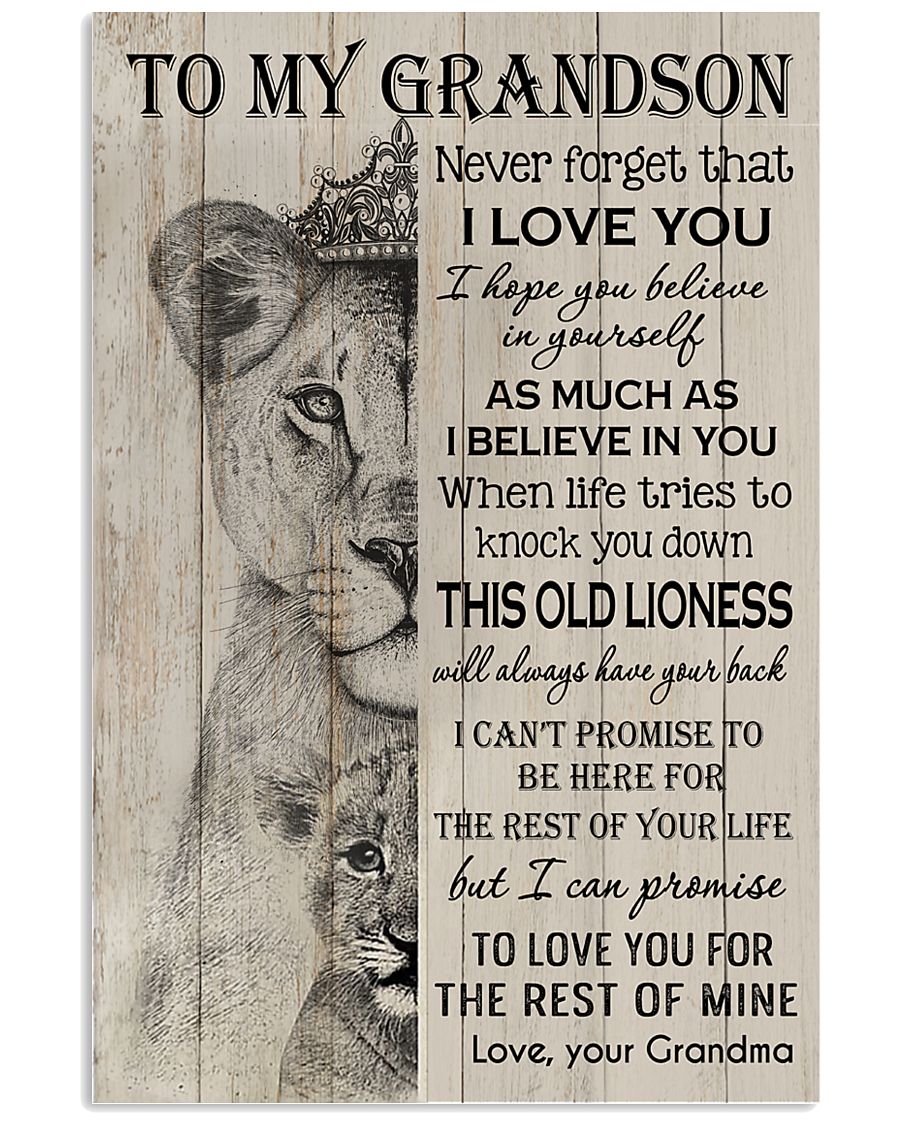 TO MY GRANDSON
Never forget that
I LOVE YOU
I hope you believe
in yourself
AS MUCH AS
I BELIEVE IN YOU
When life tries to
knock you down
THIS OLD LIONESS
will always have your back
I CAN'T PROMISE TO
BE HERE FOR
THE REST OF YOUR LIFE
but I can promise
TO LOVE YOU FOR
THE REST OF MINE
Love, your Grandma